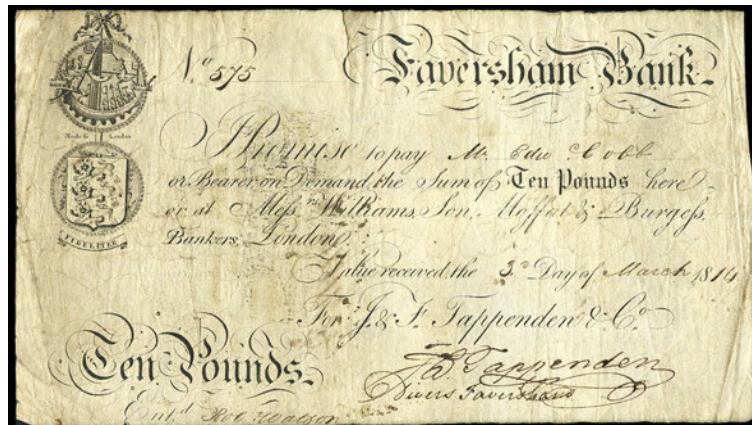 Nº 575 Faversham Bank.
Neale Sc London
I Promise to pay Mr. Edwd Cobb
or Bearer, on Demand, the Sum of Ten Pounds here
or at Messrs Williams, Son, Moffat & Burgess,
Bankers, London.
FIDELITER
Value received the 3d Day of March 1814
For J. & F. Tappenden & Co
Ten Pounds.
Tappenden
Faversham
Entd